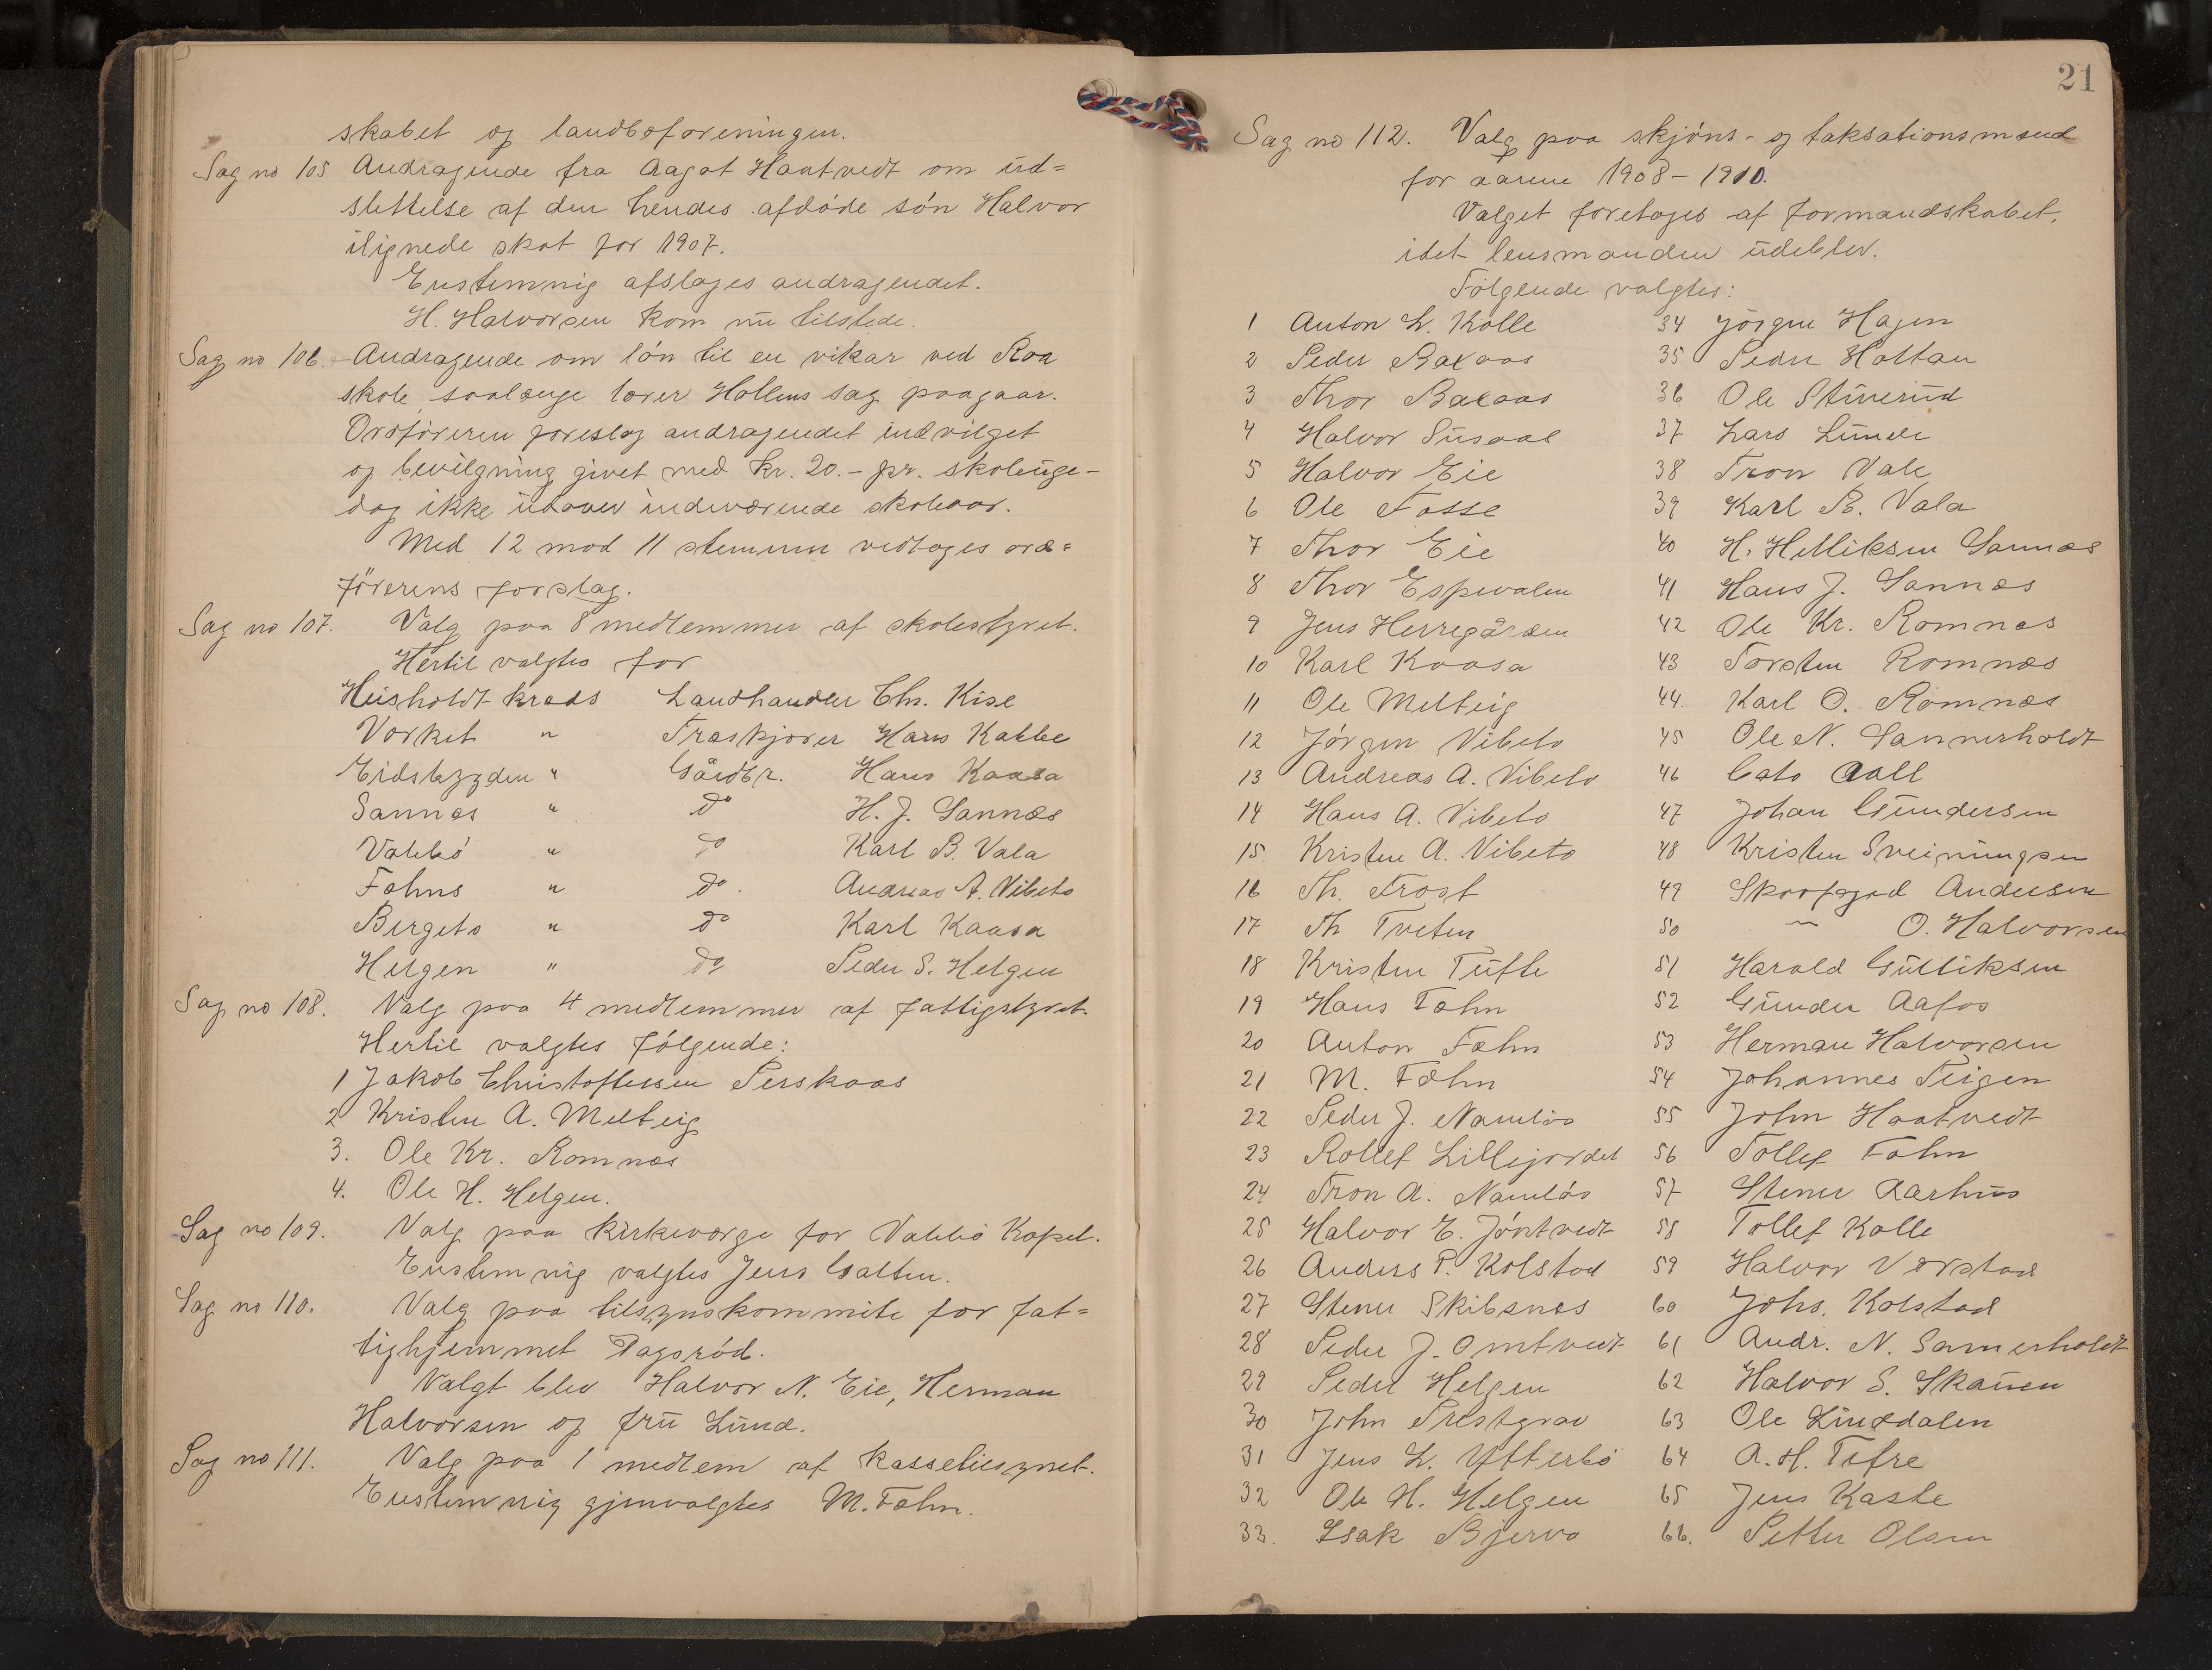 skabet og landboforeningen.
Sag no 105 Andragende fra Aagot Haatvedt om ud=
slettelse af den hendes afdøde søn Halvor
ilignede skat for 1907.
Enstemmig afslages andragendet.
H. Halvorsen kom nu tilstede.
Sag no 106. Andragende om løn til en vikar ved Roa
skole saalænge lærer Hollens sag paagaar.
Ordføreren foreslog andragendet indvilget
og bevilgning givet med kr. 20.- pr. skoleuge-
dog ikke udover indeværende skoleaar.
Med 12 mod 11 stemmer vedtages ord=
førerens forslag.
Sag no 107. Valg paa 8 medlemmer af skolestyret.
Hertil valgtes for
Heisholdt kreds Landhandler Chr. Kise
Vorket " Træskjærer Hans Kabbe
Eidsbygden " Gårdbr. Hans Kaasa
Sannes " do H. J. Sannes
Valebø " do Karl B. Vala
Fæhns " do. Andreas A. Vibeto
Bergets " do Karl Kaasa
Helgen " do Peder S. Helgen
Sag no 108. Valg paa 4 medlemmer af fattigstyret.
Hertil valgtes følgende:
1 Jakob Christoffersen Perskaas
2 Kristen A. Melteig
3. Ole Kr. Romnes
4. Ole H. Helgen.
Sag no 109. Valg paa kirkeværge for Valebø Kapel.
Enstemmig valgtes Jens Galten.
Sag no 110. Valg paa tilsynskommite for fat=
tighjemmet Dagsrød.
Valgt blev Halvor N. Eie, Herman
Halvorsen og fru Lund.
Sag no 111. Valg paa 1 medlem af kasseliesynet.
Enstemmig gjenvalgtes M. Fæhn.
21
Sag no 112. Valg paa skjøns- og taksationsmænd
for aarene 1908-1910.
Valget foretages af formandskabet,
idet lensmanden udeblev.
Følgende valgtes:
1 Anton L. Kolle
2 Peder Baxaas
3 Thor Baxaas
4 Halvor Susaas
5 Halvor Eie
6 Ole Fosse
7 Thor Eie
8 Thor Espevalen
9 Jens Herregården
10 Karl Kaasa
11 Ole Melteig
12 Jørgen Vibeto
13 Andreas A. Vibeto
14 Hans A. Vibeto
15. Kristen A. Vibeto
16 Th. Frost
17 Th Tveten
18 Kristen Tufte
19 Hans Fæhn
20 Anton Fæhn
21 M. Fæhn
22 Peder J. Namløs
23 Rollef Lillejordet
24 Tron A. Namløs
25 Halvor E. Jøntvedt
26 Anders P. Kolstad
27 Stener Skibsnes
28 Peder J. Omtvedt
29 Peder Helgen
30 John Prestgrav
31 Jens L. Ytterbø
32 Ole H. Helgen
33. Isak Bjerva
34 Jørgen Hagen
35 Peder Holtan
36 Ole Stuverud
37 Lars Lunde
38 Tron Vale
39 Karl B. Vala
40 H. Helliksen Sannes
41 Hans J. Sannes
42 Ole Kr. Romnes
43 Torsten Romnes
44. Karl O. Romnes
45 Ole N. Sannerholdt
46 Cato Aall
47 Johan Gundersen
48 Kristen Sveinungsen
49 Skogfoged Andersen
50 " O. Halvorsen
51 Harald Gulliksen
52 Gunder Aafos
53 Herman Halvorsen
54 Johannes Teigen
55 John Haatvedt
56 Tollef Fæhn
57 Stener Aarhus
58 Tollef Kolle
59 Halvor Verstad
60 Johs. Kolstad
61 Andr. N. Sannerholdt
62 Halvor S. Skauen
63 Ole Linddalen
64 A. H. Tefre
65 Jens Kaste
66. Petter Olsen